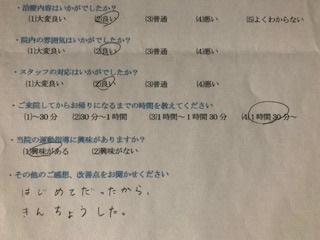 ・治療内容はいかがでしたか？
(1)大変良い (2)良い (3)普通 (4)悪い (5)よくわからない
・院内の雰囲気はいかがでしたか？
(1)大変良い (2)良い (3)普通 (4)悪い
・スタッフの対応はいかがでしたか？
(1)大変良い (2)良い (3)普通 (4)悪い
・ご来院してからお帰りになるまでの時間を教えてください
(1)～30分 (2)30分～1時間 (3)1時間～1時間30分 (4)1時間30分～
・当院の運動指導に興味がありますか？
(1)興味がある (2)興味がない
・その他のご感想、改善点をお聞かせください
はじめてだったから、
きんちょうした。